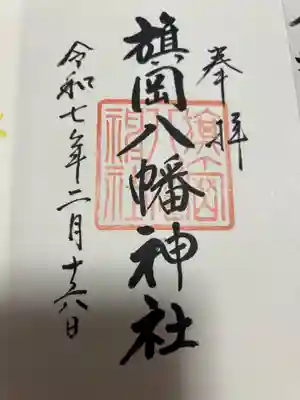 奉拝
旗岡八幡神社
令和七年二月十六日
旗岡八幡神社